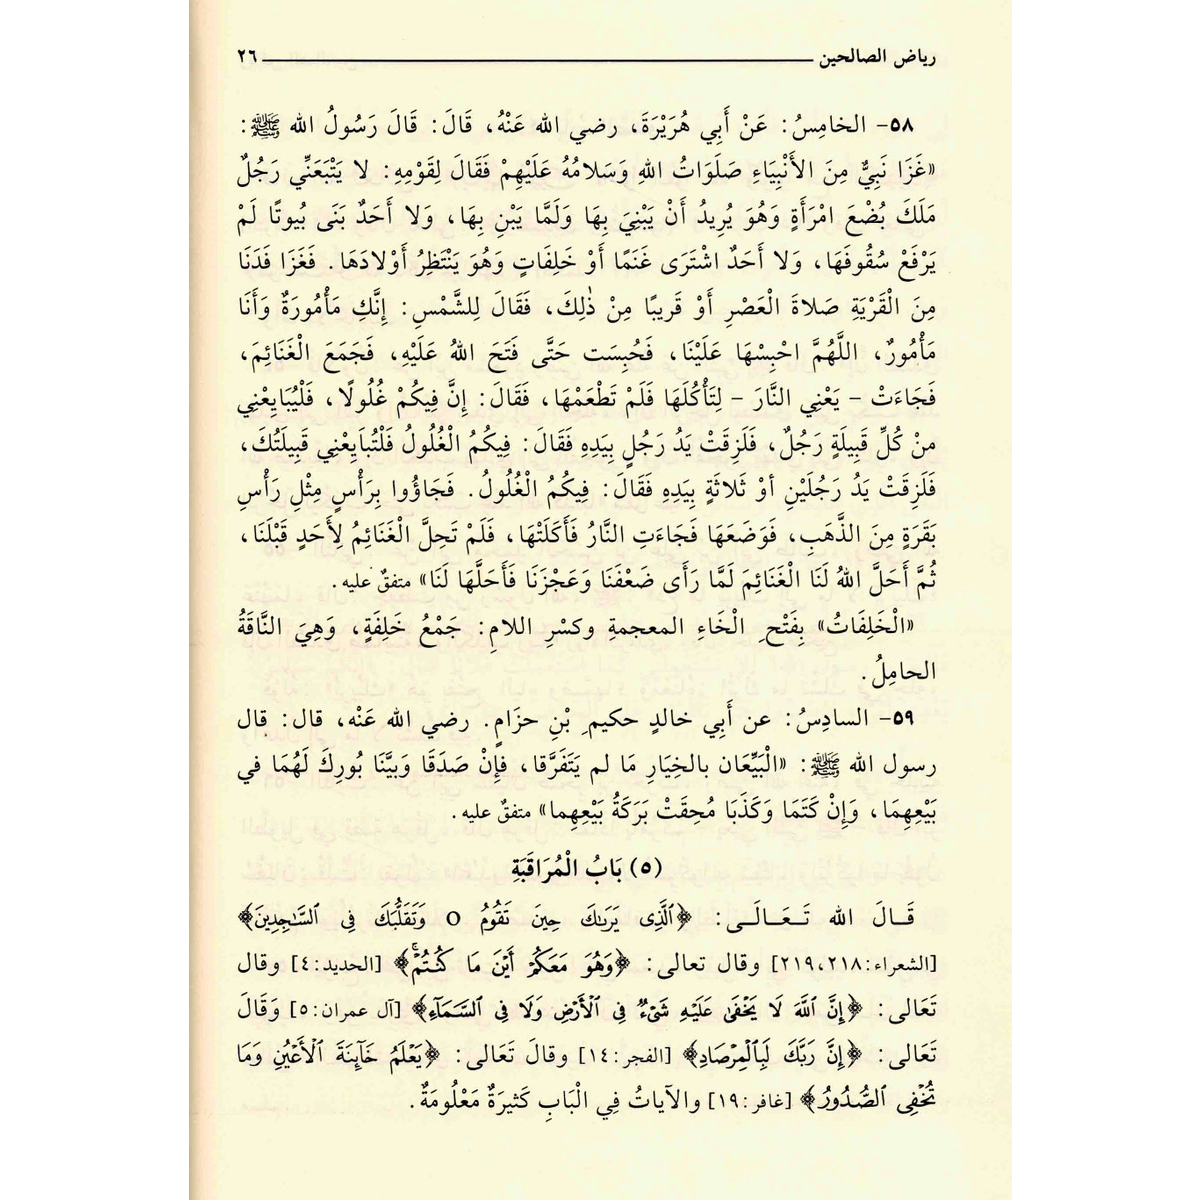 رياض الصالحين ٢٦
٥٨- الخامِسُ: عَنْ أَبِي هُرَيْرَةَ، رضي الله عَنْهُ، قَالَ: قَالَ رَسُولُ الله ﷺ:
«غَزَا نَبِيٌّ مِنَ الأَنْبِيَاءِ صَلَوَاتُ اللهِ وَسَلامُهُ عَلَيْهِمْ فَقَالَ لِقَوْمِهِ: لا يَتْبَعَنِّي رَجُلٌ
مَلَكَ بُضْعَ امْرَأَةٍ وَهُوَ يُرِيدُ أَنْ يَبْنِيَ بِهَا وَلَمَّا يَبْنِ بِهَا، وَلا أَحَدٌ بَنَى بُيوتًا لَمْ
يَرْفَعْ سُقُوفَهَا، وَلا أَحَدٌ اشْتَرَى غَنَمًا أَوْ خَلِفَاتٍ وَهُوَ يَنْتَظِرُ أَوْلادَهَا. فَغَزَا فَدَنَا
مِنَ الْقَرْيَةِ صَلاةَ الْعَصْرِ أَوْ قَرِيبًا مِنْ ذٰلِكَ، فَقَالَ لِلشَّمْسِ: إِنَّكِ مَأْمُورَةٌ وَأَنَا
مَأْمُورٌ، اللَّهُمَّ احْبِسْهَا عَلَيْنَا، فَحُبِسَت حَتَّى فَتَحَ اللهُ عَلَيْهِ، فَجَمَعَ الْغَنَائِمَ،
فَجَاءَتْ - يَعْنِي النَّارَ - لِتَأْكُلَهَا فَلَمْ تَطْعَمْهَا، فَقَالَ: إِنَّ فِيكُمْ غُلُولًا، فَلْيُبَايِعْنِي
منْ كُلِّ قَبِيلَةٍ رَجُلٌ، فَلَزِقَتْ يَدُ رَجُلٍ بِيَدِهِ فَقَالَ: فِيكُمُ الْغُلُولُ فَلْتُبَايِعْنِي قَبِيلَتُكَ،
فَلَزِقَتْ يَدُ رَجُلَيْنِ أوْ ثَلاثَةٍ بِيَدِهِ فَقَالَ: فِيكُمُ الْغُلُولُ. فَجَاؤُوا بِرَأْسٍ مِثْلِ رَأْسِ
بَقَرَةٍ مِنَ الذَّهَبِ، فَوَضَعَهَا فَجَاءَتِ النَّارُ فَأَكَلَتْهَا، فَلَمْ تَحِلَّ الْغَنَائِمُ لِأَحَدٍ قَبْلَنَا،
ثُمَّ أَحَلَّ اللهُ لَنَا الْغَنَائِمَ لَمَّا رَأَى ضَعْفَنَا وَعَجْزَنَا فَأَحَلَّهَا لَنَا» متفقٌ عليه.
«الْخَلِفَاتُ» بِفَتْحِ الْخَاءِ المعجمةِ وكسْرِ اللامِ: جَمْعُ خَلِفَةٍ، وَهِيَ النَّاقَةُ
الحامِلُ.
٥٩- السادِسُ: عن أَبِي خالدٍ حكيمِ بْنِ حزَامٍ. رضي الله عَنْه، قال: قال
رسول الله ﷺ: «الْبَيِّعَان بالخِيَارِ مَا لم يَتَفَرَّقا، فإِنْ صَدَقَا وَبيَّنَا بُورِكَ لَهُمَا في
بَيْعِهِمَا، وَإِنْ كَتَمَا وَكَذَبَا مُحِقَتْ بَرَكَةُ بَيْعِهِما» متفقٌ عليه.
(٥) بَابُ الْمُرَاقَبَةِ
قَـالَ الله تَـعَـالَـى: ﴿ٱلَّذِى يَرَىٰكَ حِينَ تَقُومُ ○ وَتَقَلُّبَكَ فِى ٱلسَّـٰجِدِينَ﴾
[الشعراء:٢١٨،٢١٩] وقال تعالى: ﴿وَهُوَ مَعَكُمْ أَيْنَ مَا كُنتُمْ ۚ﴾ [الحديد:٤] وقال
تَعَالى: ﴿إِنَّ ٱللَّهَ لَا يَخْفَىٰ عَلَيْهِ شَىْءٌ فِى ٱلْأَرْضِ وَلَا فِى ٱلسَّمَآءِ﴾ [آل عمران:٥] وَقَالَ
تَعَالى: ﴿إِنَّ رَبَّكَ لَبِٱلْمِرْصَادِ﴾ [الفجر:١٤] وقالَ تَعَالى: ﴿يَعْلَمُ خَآئِنَةَ ٱلْأَعْيُنِ وَمَا
تُخْفِى ٱلصُّدُورُ﴾ [غافر:١٩] والآياتُ فِي الْبَابِ كَثيرَةٌ مَعْلُومَةٌ.